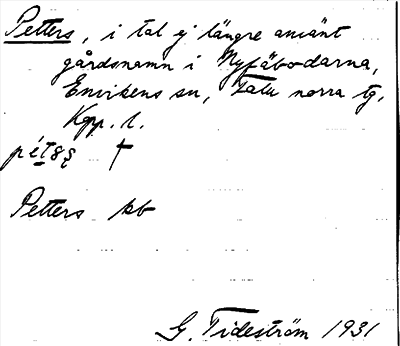 Petters, i tal ej längre använt
gårdsnamn i Nyfäbodarna,
Envikens sn, Falu norra tg,
Kpp. l.
Petters kb
G. Tideström 1931